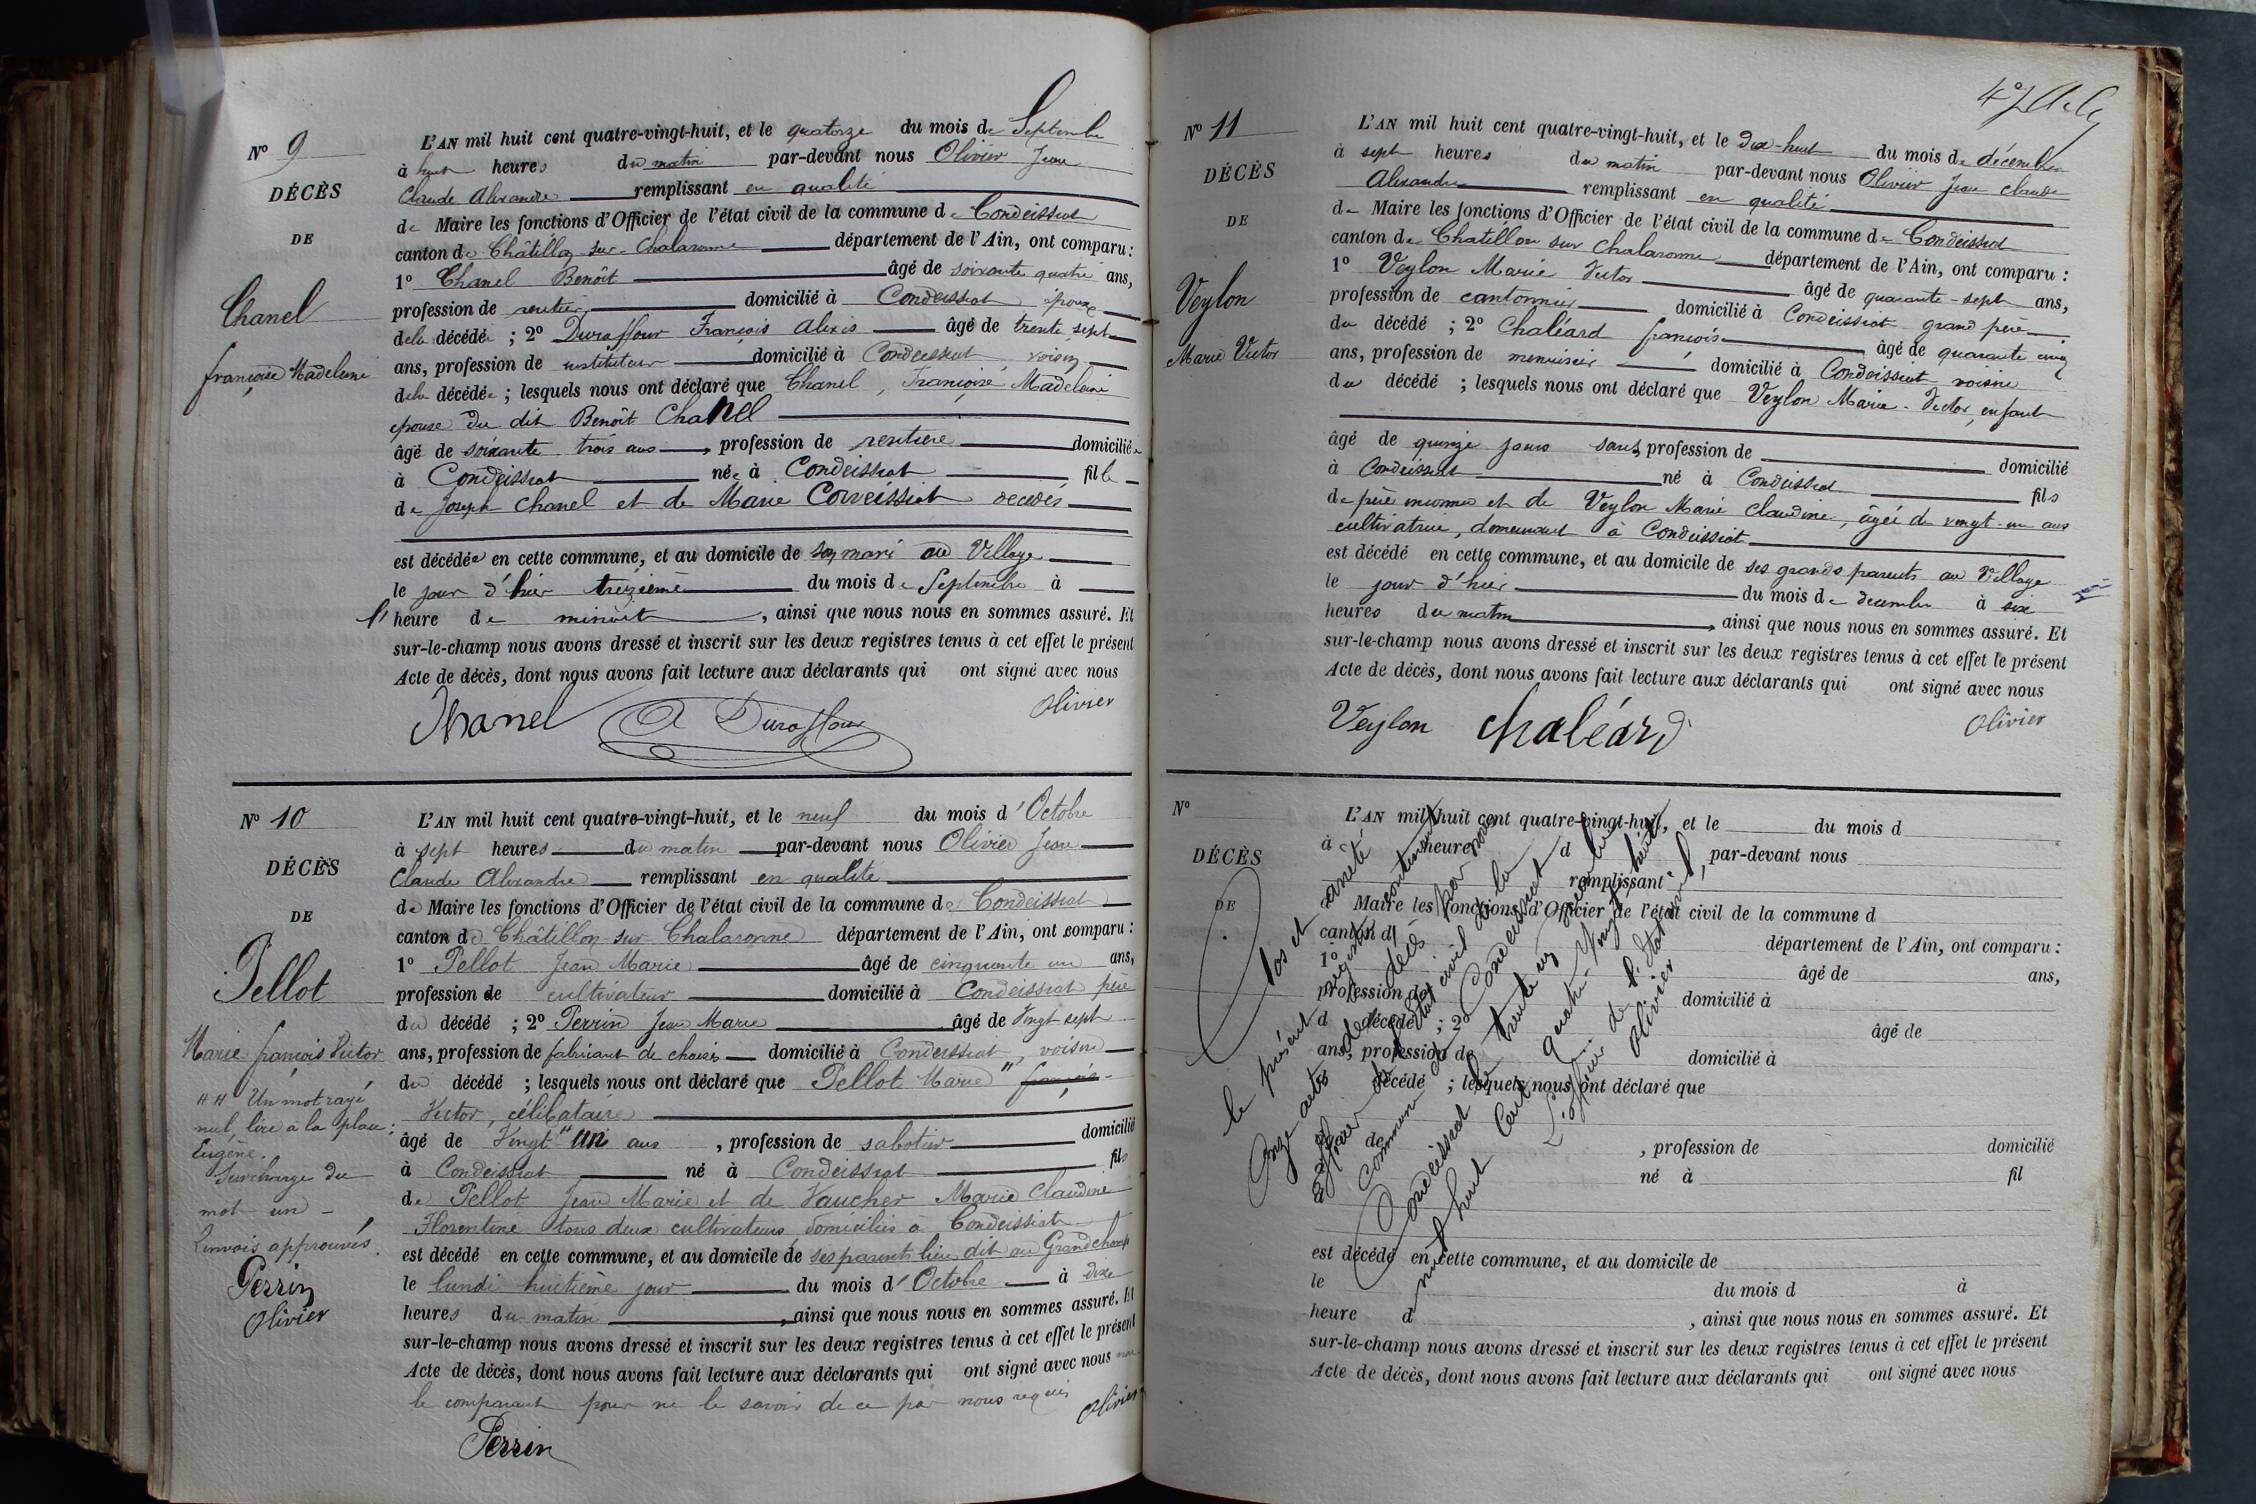 Nº 9
DÉCÈS
DE
Chanel
françoise Madeleine
L'AN mil huit cent quatre-vingt-huit, et le quatorze du mois de Septembre
à huit heures du matin par-devant nous Olivier Jean
Claude Alexandre remplissant en qualité
de Maire les fonctions d'Officier de l'état civil de la commune de Condeissiat
canton de Châtillon sur Chalaronne département de l'Ain, ont comparu :
1º Chanel Benoît âgé de soixante quatre ans,
profession de rentier domicilié à Condeissiat époux
dela décédée ; 2º Duraffour François Alexis âgé de trente sept
ans, profession de instituteur domicilié à Condeissiat voisin
dela décédée ; lesquels nous ont déclaré que Chanel, Françoise Madeleine
épouse du dit Benoît Chanel
âgé de soixante trois ans, profession de rentière domiciliée
à Condeissiat née à Condeissiat fille
de Joseph Chanel et de Marie Corveissiat décédés
est décédée en cette commune, et au domicile de son mari au Village
le jour d'hier treizième du mois de Septembre à
l'heure de minuit, ainsi que nous nous en sommes assuré. Et
sur-le-champ nous avons dressé et inscrit sur les deux registres tenus à cet effet le présent
Acte de décès, dont nous avons fait lecture aux déclarants qui ont signé avec nous
Chanel A Duraffour Olivier
Nº 10
DÉCÈS
DE
Pellot
Marie françois Victor
"" Un mot rayé
nul, lire à la place :
Eugène.
Surcharge du
mot un -
Renvois approuvés.
Perrin
Olivier
L'AN mil huit cent quatre-vingt-huit, et le neuf du mois d'Octobre
à sept heures du matin par-devant nous Olivier Jean
Claude Alexandre remplissant en qualité
de Maire les fonctions d'Officier de l'état civil de la commune de Condeissiat
canton de Châtillon sur Chalaronne département de l'Ain, ont comparu :
1º Pellot Jean Marie âgé de cinquante un ans,
profession de cultivateur domicilié à Condeissiat père
du décédé ; 2º Perrin Jean Marie âgé de Vingt sept
ans, profession de fabricant de chaises domicilié à Condeissiat, voisin
du décédé ; lesquels nous ont déclaré que Pellot Marie " françois
Victor, célibataire
âgé de Vingt " un ans, profession de sabotier domicilié
à Condeissiat né à Condeissiat fils
de Pellot Jean Marie et de Vaucher Marie Claudine
Florentine tous deux cultivateurs domiciliés à Condeissiat
est décédé en cette commune, et au domicile de ses parents lieu dit au Grand champ
le lundi huitième jour du mois d'Octobre à dix
heures du matin, ainsi que nous nous en sommes assuré. Et
sur-le-champ nous avons dressé et inscrit sur les deux registres tenus à cet effet le présent
Acte de décès, dont nous avons fait lecture aux déclarants qui ont signé avec nous non
le comparant pour ne le savoir de ce par nous requis
Olivier
Perrin
Nº 11
DÉCÈS
DE
Veylon
Marie Victor
L'AN mil huit cent quatre-vingt-huit, et le dix-huit du mois de décembre
à sept heures du matin par-devant nous Olivier Jean Claude
Alexandre remplissant en qualité
de Maire les fonctions d'Officier de l'état civil de la commune de Condeissiat
canton de Chatillon sur Chalaronne département de l'Ain, ont comparu :
1º Veylon Marie Victor âgé de quarante-sept ans,
profession de cantonnier domicilié à Condeissiat grand père
du décédé ; 2º Chaléard françois âgé de quarante cinq
ans, profession de menuisier domicilié à Condeissiat voisin
du décédé ; lesquels nous ont déclaré que Veylon Marie-Victor, enfant
âgé de quinze jours sans profession de domicilié
à Condeissiat né à Condeissiat fils
de père inconnu et de Veylon Marie Claudine, âgée de vingt-un ans
cultivatrice, demeurant à Condeissiat
est décédé en cette commune, et au domicile de ses grands parents au Village
le jour d'hier du mois de decembre à six
heures du matin, ainsi que nous nous en sommes assuré. Et
sur-le-champ nous avons dressé et inscrit sur les deux registres tenus à cet effet le présent
Acte de décès, dont nous avons fait lecture aux déclarants qui ont signé avec nous
Veylon Chaléard Olivier
Nº
DÉCÈS
DE
L'AN mil huit cent quatre-vingt-huit, et le du mois d
à heure d par-devant nous
remplissant
d Maire les fonctions d'Officier de l'état civil de la commune d
canton d département de l'Ain, ont comparu :
1º âgé de ans,
profession de domicilié à
d décédé ; 2º âgé de
ans, profession de domicilié à
d décédé ; lesquels nous ont déclaré que
âgé de , profession de domicilié
à né à fil
d
est décédé en cette commune, et au domicile de
le du mois d à
heure d , ainsi que nous nous en sommes assuré. Et
sur-le-champ nous avons dressé et inscrit sur les deux registres tenus à cet effet le présent
Acte de décès, dont nous avons fait lecture aux déclarants qui ont signé avec nous
Clos et arrêté
le présent registre contenant
Onze actes de décès par nous
Officier de l'état civil de la
Commune de Condeissiat
Condeissiat le trente un decembre
mil huit cent quatre-vingt huit
L'officier de l'état civil,
Olivier